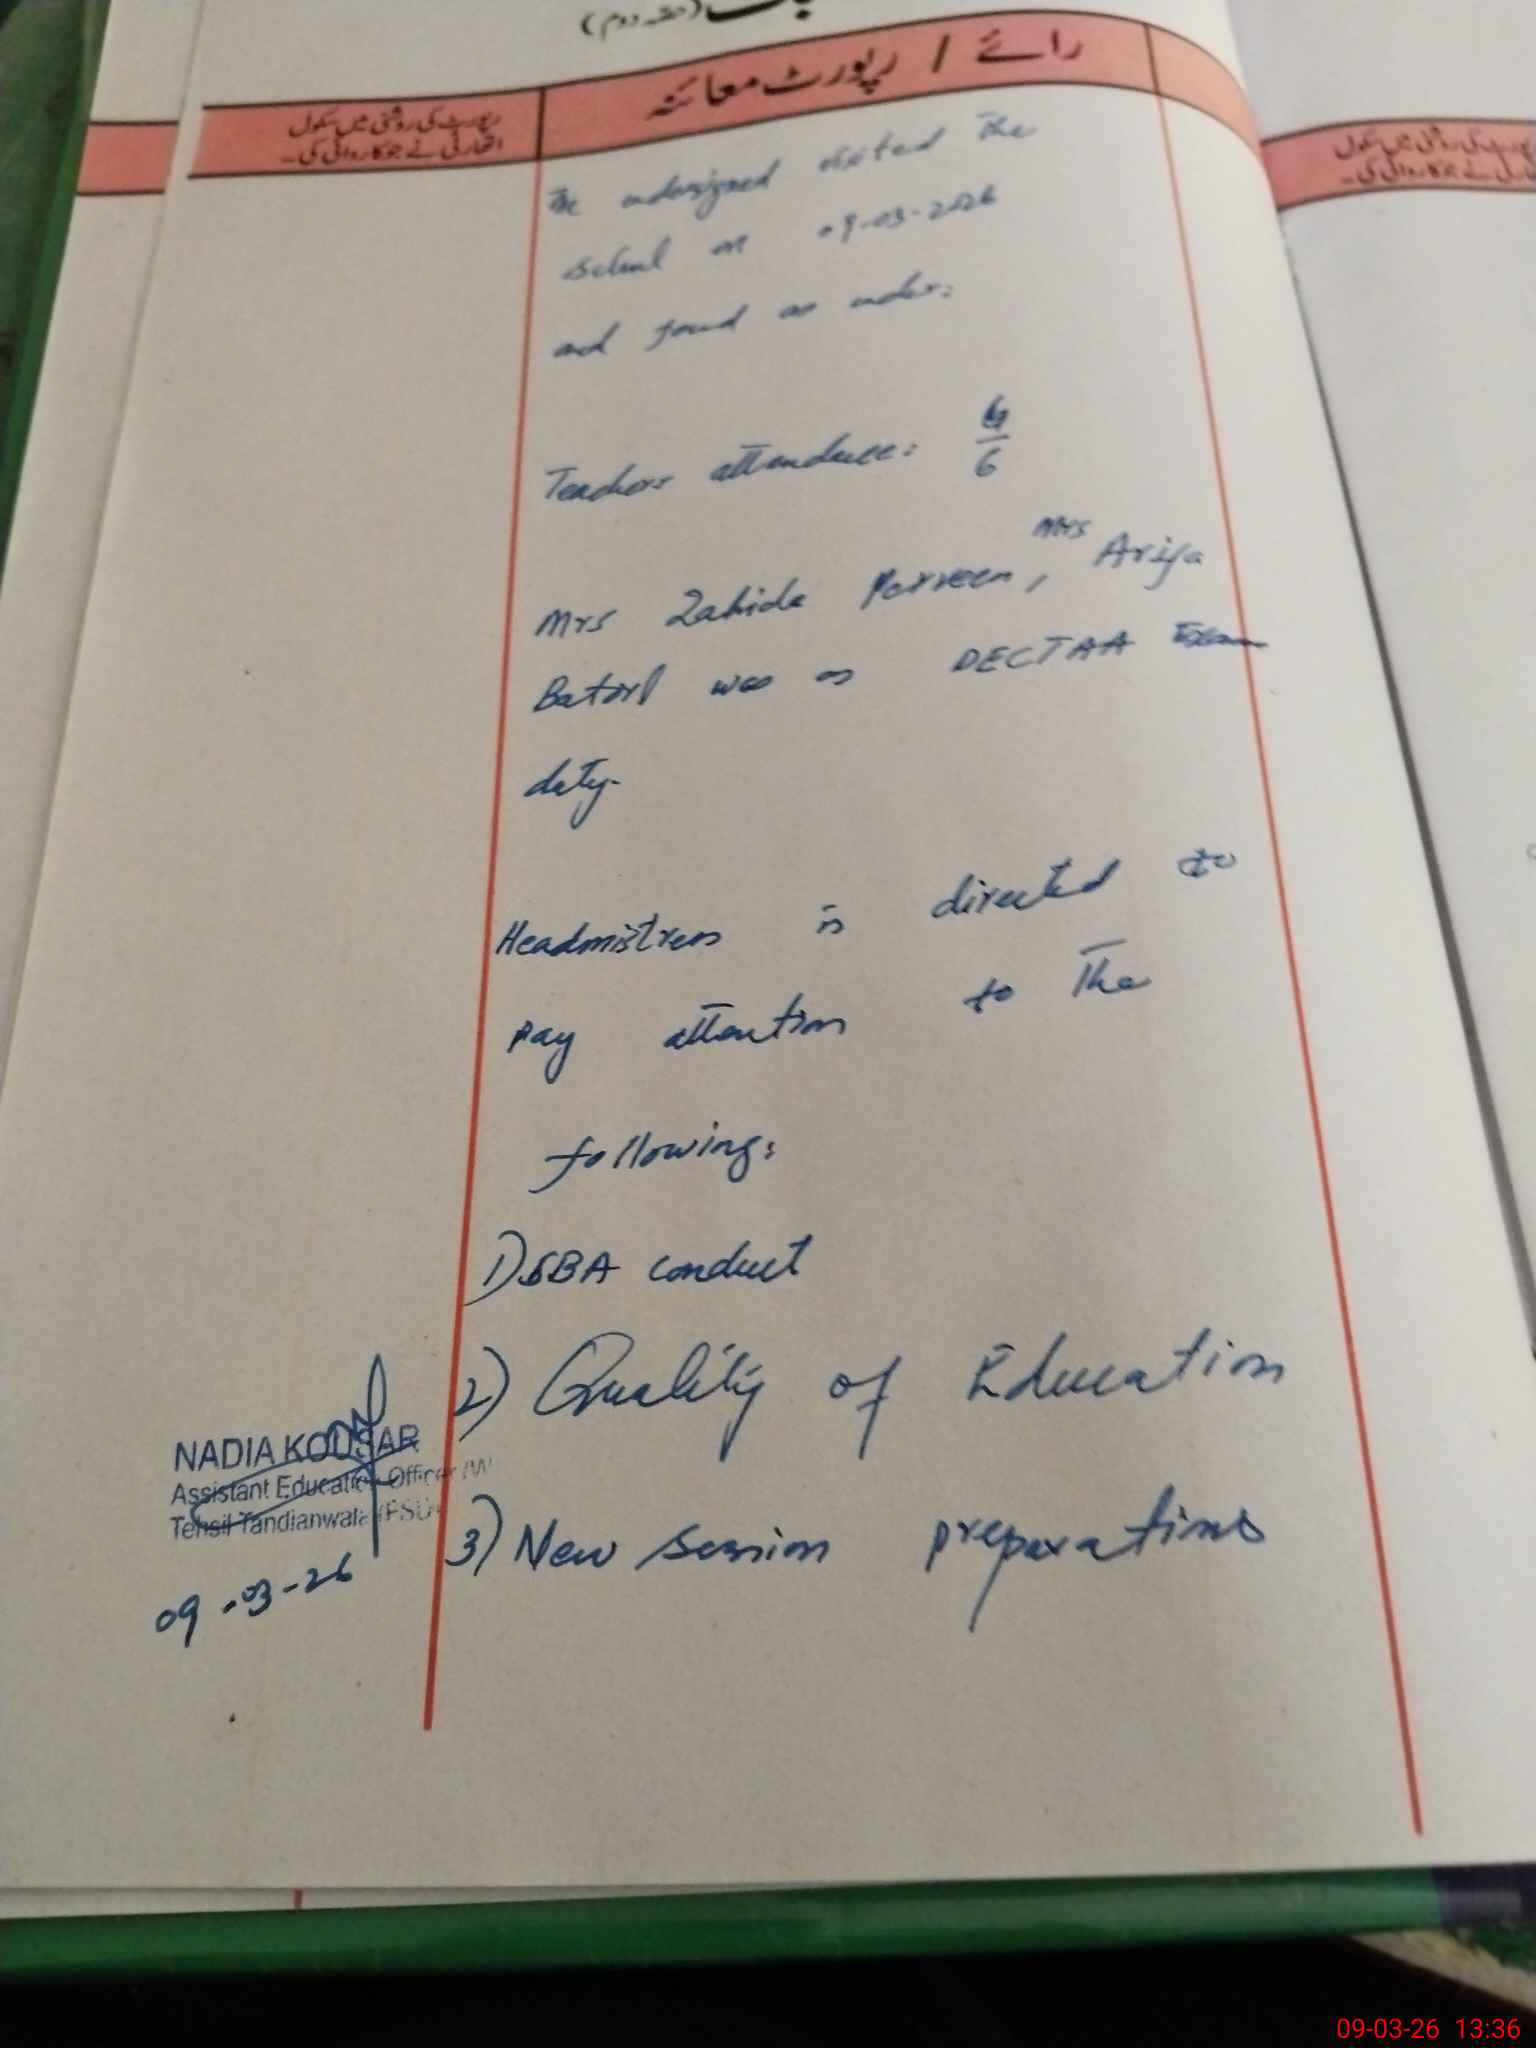 (حصہ دوم)
رائے / رپورٹ معائنہ
رپورٹ کی روشنی میں سکول
اتھارٹی نے جو کاروائی کی۔
The undersigned visited the
school on 09-03-2026
and found as under:
Teachers attendance: 6/6
Mrs Zahida Parveen, Mrs Arifa
Batool was on DECTAA Exam
duty.
Headmistress is directed to
Pay attention to The
following:
1) SBA conduct
2) Quality of Education
3) New session preparations
NADIA KOUSAR
Assistant Education Officer (W
Tehsil Tandianwala (FSD)
09-03-26
رپورٹ کی روشنی میں سکول
09-03-26 13:36